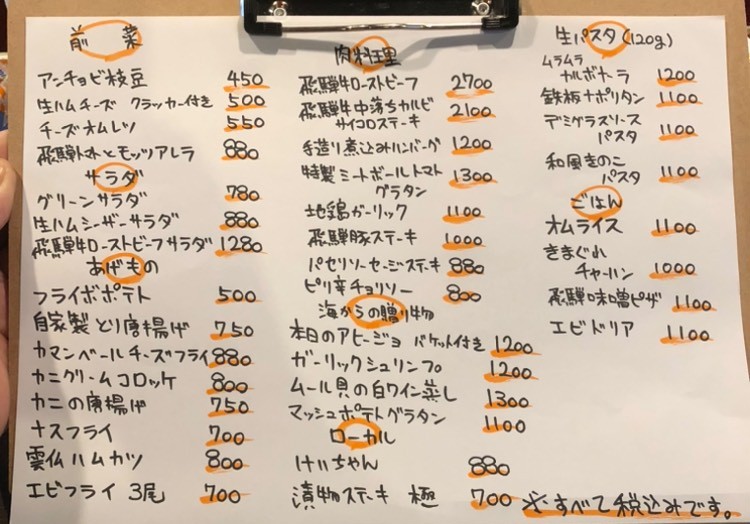 前菜
アンチョビ枝豆 450
生ハムチーズ クラッカー付き 500
チーズオムレツ 550
飛騨トマトとモッツアレラ 880
サラダ
グリーンサラダ 780
生ハムシーザーサラダ 880
飛騨牛ローストビーフサラダ 1280
あげもの
フライボポテト 500
自家製とり唐揚げ 750
カマンベールチーズフライ 880
カニクリームコロッケ 800
カニの唐揚げ 750
ナスフライ 700
雲仏ハムカツ 800
エビフライ 3尾 700
肉料理
飛騨牛ローストビーフ 2700
飛騨牛中落ちカルビ
サイコロステーキ 2100
手造り煮込みハンバーグ 1200
特製ミートボールトマト
グラタン 1300
地鶏ガーリック 1100
飛騨豚ステーキ 1000
パセリソーセージステーキ 880
ピリ辛チョリソー 800
海からの贈り物
本日のアヒージョ バケット付き 1200
ガーリックシュリンプ 1200
ムール貝の白ワイン蒸し 1300
マッシュポテトグラタン 1100
ローカル
けいちゃん 880
漬物ステーキ 極 700
生パスタ(120g)
ムラムラ
カルボナーラ 1200
鉄板ナポリタン 1100
デミグラスソース
パスタ 1100
和風きのこ
パスタ 1100
ごはん
オムライス 1100
きまぐれ
チャーハン 1000
飛騨味噌ピザ 1100
エビドリア 1100
※すべて税込みです。